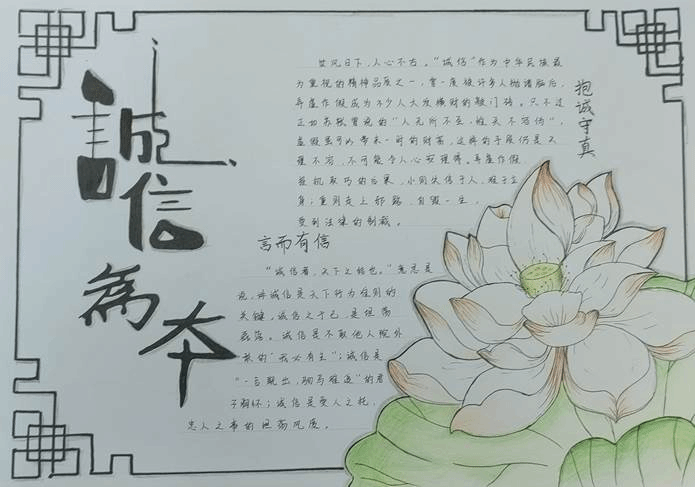 誠信為本
抱诚守真
世风日下，人心不古。“诚信”作为中华民族最
为重视的精神品质之一，曾一度被许多人抛诸脑后，
弄虚作假成为不少人大发横财的敲门砖。只不过
正如苏轼曾说的“人无所不至，惟天不容伪”，
虚假虽可以带来一时的财富，这样的手段仍是天
理不容，不可能令人心安理得。弄虚作假、
投机取巧的后果，小则失信于人，难于立
身；重则走上邪路，自毁一生，
受到法律的制裁。
言而有信
“诚信者，天下之结也。”意思是
说，讲诚信是天下行为准则的
关键，诚信之于己，是坦荡
磊落。诚信是不取他人院外
的“我必有主”；诚信是
“一言既出，驷马难追”的君
子胸怀；诚信是受人之托，
忠人之事的坦荡风度。